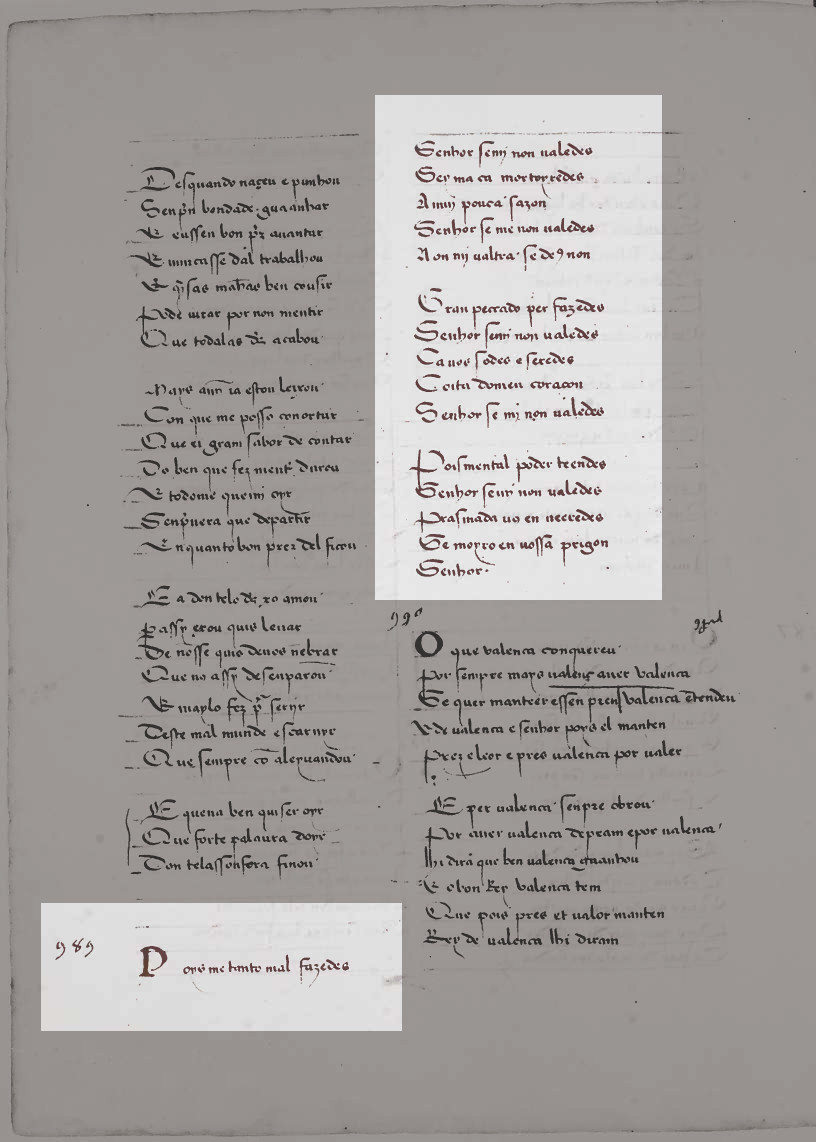 Desquando naçeu e punhou
Senpͬn bondade guaanhar
E eussen bon pͬz auantar
E nuncasse dal trabalhou
E
Pode uirar por non mentir
Que todalas acabou
Mays ia estou
Con que me posso conortar
Que ei gram sabor de contar
Do ben que fez durou
E todome queim oyr
que departir
Enquanto bon prez del ficou
E a don telo
P assy quis leuar
De nosse quis deuos
Que no assy desenparou
E maylo fez seruir
Deste mal munde escarnyr
Que sempre cō alexuandou
E quena ben quiser oyr
Que forte palaura doyr
Don telassonfora finou
989
Poys me tanto mal fazedes
Senhor semj non ualedes
Sey ma ca mortorredes
A muj pouca sazon
Senhor se me non ualedes
Non mj ualtra se de9 non
Gran peccado per fazedes
Senhor semj non ualedes
Ca uos sodes e seredes
Coita domeu coraçon
Senhor se mj non ualedes
Poismental poder teendes
Senhor semj non ualedes
Prasmada uo9 en ueeredes
Se moyro en uossa prigon
Senhor
990
O que valenca conquereu
Por sempre mays ualenç auer valenca
Se quer manteer essen pren valenca ētendeu
Rde valenca e senhor poys el manten
Prez e leor e pres valença por valer
E per ualenca senpre obrou
Por auer ualenca depram epor ualenca
lhi dirā que ben valenca guaanhou
E obon Rey valenca tem
Que pois pres et ualor manten
Rey de ualenca lhi diram